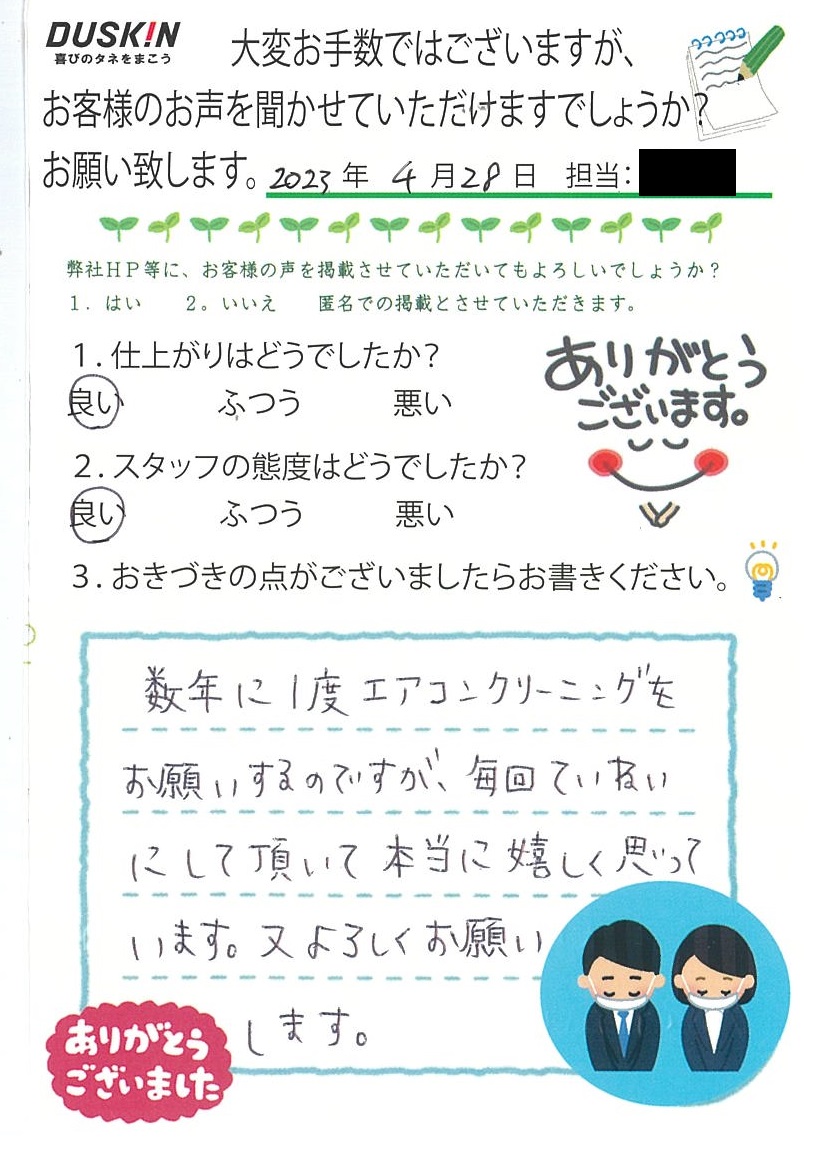 DUSK!N
喜びのタネをまこう
大変お手数ではございますが、
お客様のお声を聞かせていただけますでしょうか?
お願い致します。2023年 4月28日 担当:
弊社HP等に、お客様の声を掲載させていただいてもよろしいでしょうか?
1. はい 2。いいえ 匿名での掲載とさせていただきます。
1.仕上がりはどうでしたか?
良い ふつう 悪い
ありがとう
ございます。
2.スタッフの態度はどうでしたか?
良い ふつう 悪い
3.おきづきの点がございましたらお書きください。
数年に1度エアコンクリーニングを
お願いするのですが、毎回ていねい
にして頂いて本当に嬉しく思って
います。又よろしくお願い
します。
ありがとう
ございました